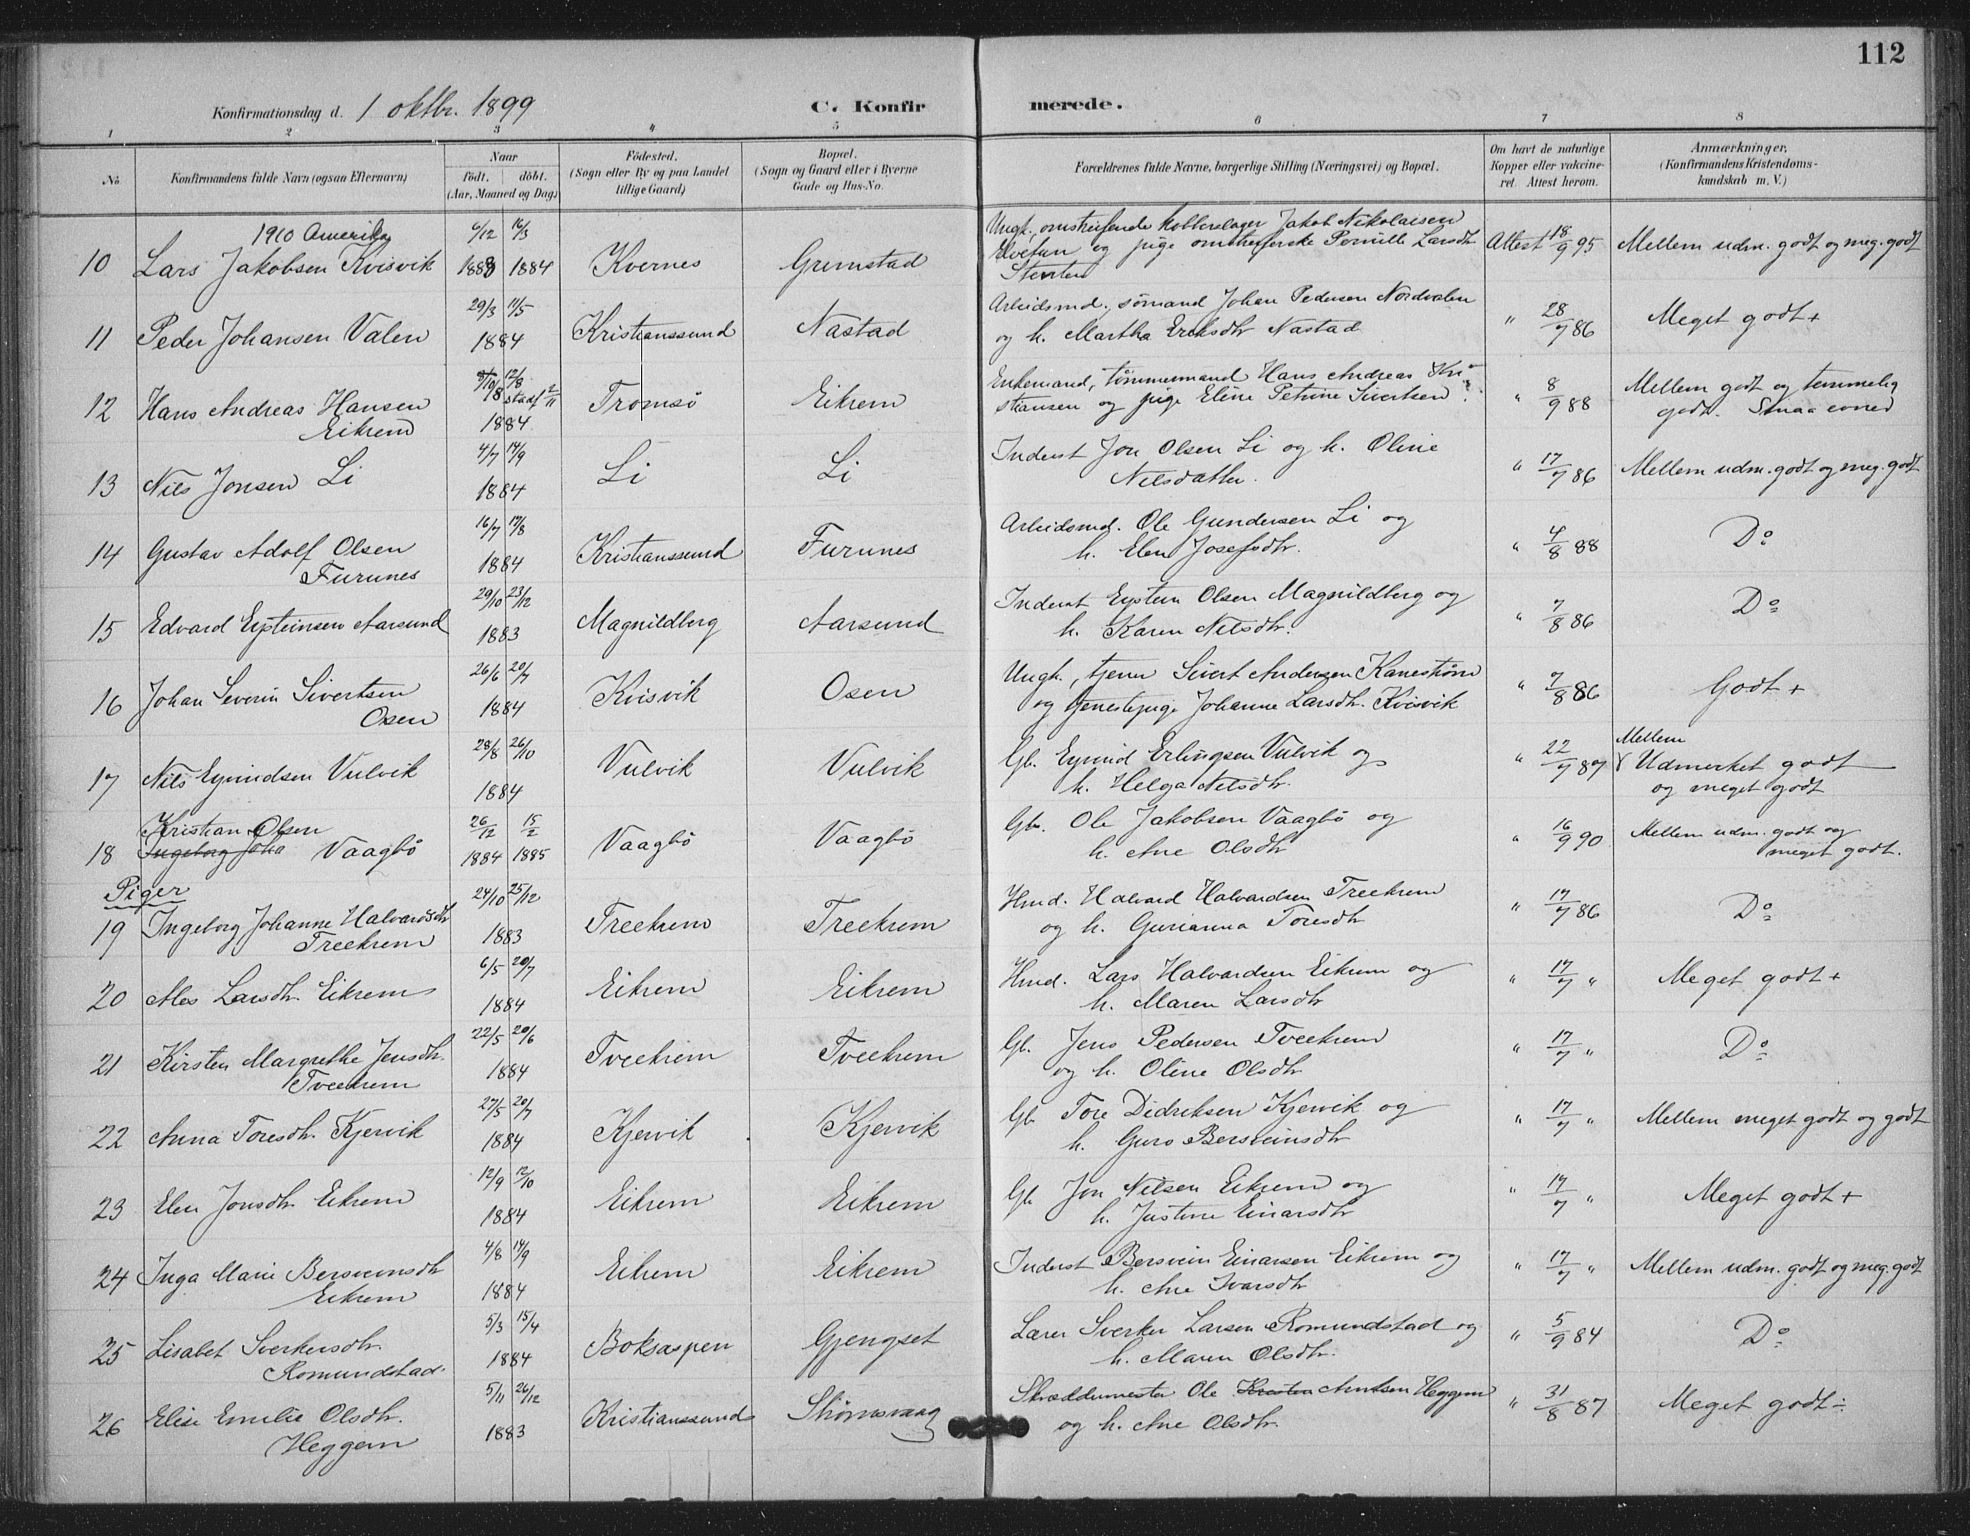 112
Konfirmationsdag d. 1 oktbr. 1899 C. Konfirmerede.
1 2 3 4 5 6 7 8
No. Konfirmandens fulde Navn (ogsaa Efternavn) Naar født. døbt. (Aar, Maaned og Dag) Fødested. (Sogn eller By og paa Landet tillige Gaard) Bopæl. (Sogn og Gaard eller i Byerne Gade og Hus-No. Forældrenes fulde Navne, borgerlige Stilling (Næringsvei) og Bopæl. Om havt de naturlige Kopper eller vaccineret. Attest herom. Anmærkninger, (Konfirmandens Kristendomskundskab m. V.)
1910 Amerika
10 Lars Jakobsen Kvisvik 6/12 1883 16/3 1884 Kvernes Grimstad Ungk. omstreifende kobberslager Jakob Nikolaisen
og pige omstreifende Pernille Larsdtr Attest 18/9 95 Mellem udm. godt og meg. godt
11 Peder Johansen Valen 29/3 11/5 1884 Kristianssund Nastad Arbeidsmd. sømand Johan Pedersen Nordvalen
og h. Martha Eriksdtr Nastad " 28/7 86 Meget godt +
12 Hans Andreas Hansen
Eikrem 12/8 stadf 2/11 1884 Tromsø Eikrem Enkemand, tømmermand Hans Andreas Kri-
stiansen og pige Eline Petrine Sivertsen " 8/9 88 Mellem godt og temmelig
godt. Smaa evner
13 Nils Jonsen Li 4/7 14/9 1884 Li Li Inderst Jon Olsen Li og h. Oline
Nilsdatter. " 17/7 86 Mellem udm. godt og meg. godt
14 Gustav Adolf Olsen
Furunes 16/7 17/8 1884 Kristianssund Furunes Arbeidsmd. Ole Gundersen Li og
h. Elen Josefsdtr. " 4/8 88 Do
15 Edvard Eysteinsen Aarsund 29/10 23/12 1883 Magnildberg Aarsund Inderst Eystein Olsen Magnildberg og
h. Karen Nilsdtr. " 7/8 86 Do
16 Johan Severin Sivertsen
Osen 26/6 20/7 1884 Kvisvik Osen Ungk., tjener Sivert Andersen Kanestrøm
og tjenestepige Johanne Larsdtr. Kvisvik " 7/8 86 Godt +
17 Nils Eyvindsen Vulvik 28/8 26/10 1884 Vulvik Vulvik Gb. Eyvind Erlingsen Vulvik og
h. Helga Nilsdtr. " 22/7 87 Mellem
Udmerket godt
og meget godt
Kristian Olsen
18 Ingeborg Joha Vaagbø 26/12 1884 15/2 1885 Vaagbø Vaagbø Gbr. Ole Jakobsen Vaagbø og
h. Ane Olsdtr " 16/9 90 Mellem udm. godt og
meget godt.
Piger
19 Ingeborg Johanne Halvardsdtr
Treekrem 24/10 25/12 1883 Treekrem Treekrem Hmd. Halvard Halvardsen Treekrem
og h. Gurianna Toresdtr " 17/7 86 Do
20 Ales Larsdtr. Eikrem 6/5 20/7 1884 Eikrem Eikrem Hmd. Lars Halvardsen Eikrem og
h. Maren Larsdtr " 17/7 " Meget godt +
21 Kirsten Margrethe Jensdtr.
Tveekrem 22/5 20/6 1884 Tveekrem Tveekrem Gb. Jens Pedersen Tveekrem
og h. Oline Olsdtr " 17/7 " Do
22 Anna Toresdtr. Kjervik 27/5 20/7 1884 Kjervik Kjervik Gb. Tore Didriksen Kjervik og
h. Guro Bersveinsdtr " 17/7 " Mellem meget godt og godt
23 Elen Jonsdtr. Eikrem 12/9 12/10 1884 Eikrem Eikrem Gb. Jon Nilsen Eikrem og
h. Justine Einarsdtr " 17/7 " Meget godt +
24 Inga Marie Bersveinsdtr
Eikrem 4/8 14/9 1884 Eikrem Eikrem Inderst Bersvein Einarsen Eikrem og
h. Ane Ivarsdtr " 17/7 " Mellem udm. godt og meg. godt
25 Lisabet Sverkersdtr.
Romundstad. 5/3 15/4 1884 Boksaspen Gjengset Lærer Sverker Larsen Romundstad og
h. Maren Olsdtr. " 5/9 84 Do
26 Elise Emilie Olsdtr.
Heggem 5/11 26/12 1883 Kristianssund Strømsvaag Skræddermester Ole Kristen Arntsen Heggem
og h. Ane Olsdtr. " 31/8 87 Meget godt ÷